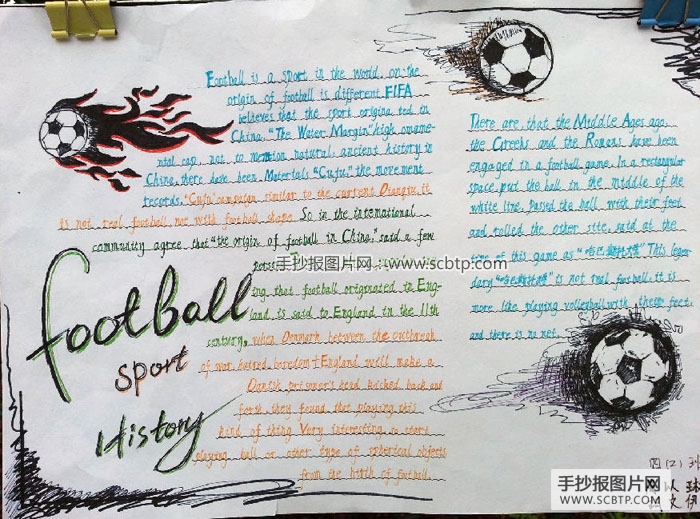 Football is a sport in the world. on the
origin of football is different. FIFA
believes that the sport origina ted in
China. "The Water Margin" high oname-
ntal cap, not to mention natural, ancient history in
China, there have been Materials "Cuju," the movement
records. "Cuju" campaign similar to the current Dianqiu, it
is not real football me with football shape. So in the international
community agree that "the origin of football in China," said a few
ing that football originated in Eng-
land is said to England in the 11th
century, when Denmark between the outbreak
of war, hatred boredom+England will make a
Danish prisoner's head kicked back and
forth, they found that playing this
kind of thing Very interesting to start
playing ball or other type of spherical objects
from the birth of football.
football
sport
History
There are, that the Middle Ages ago,
the Greeks and the Romans have been
engaged in a football game. In a rectangular
space, put the ball in the middle of the
white line, passed the ball with their foot
and rolled the other site, said at the
time of this game as
This legen
dary
is not real football. it is
more like playing volleyball with their feet
and there is no net.
四(2)班
手抄报图片网 www.scbtp.com
手抄报图片网
WWW.SCBTP.COM